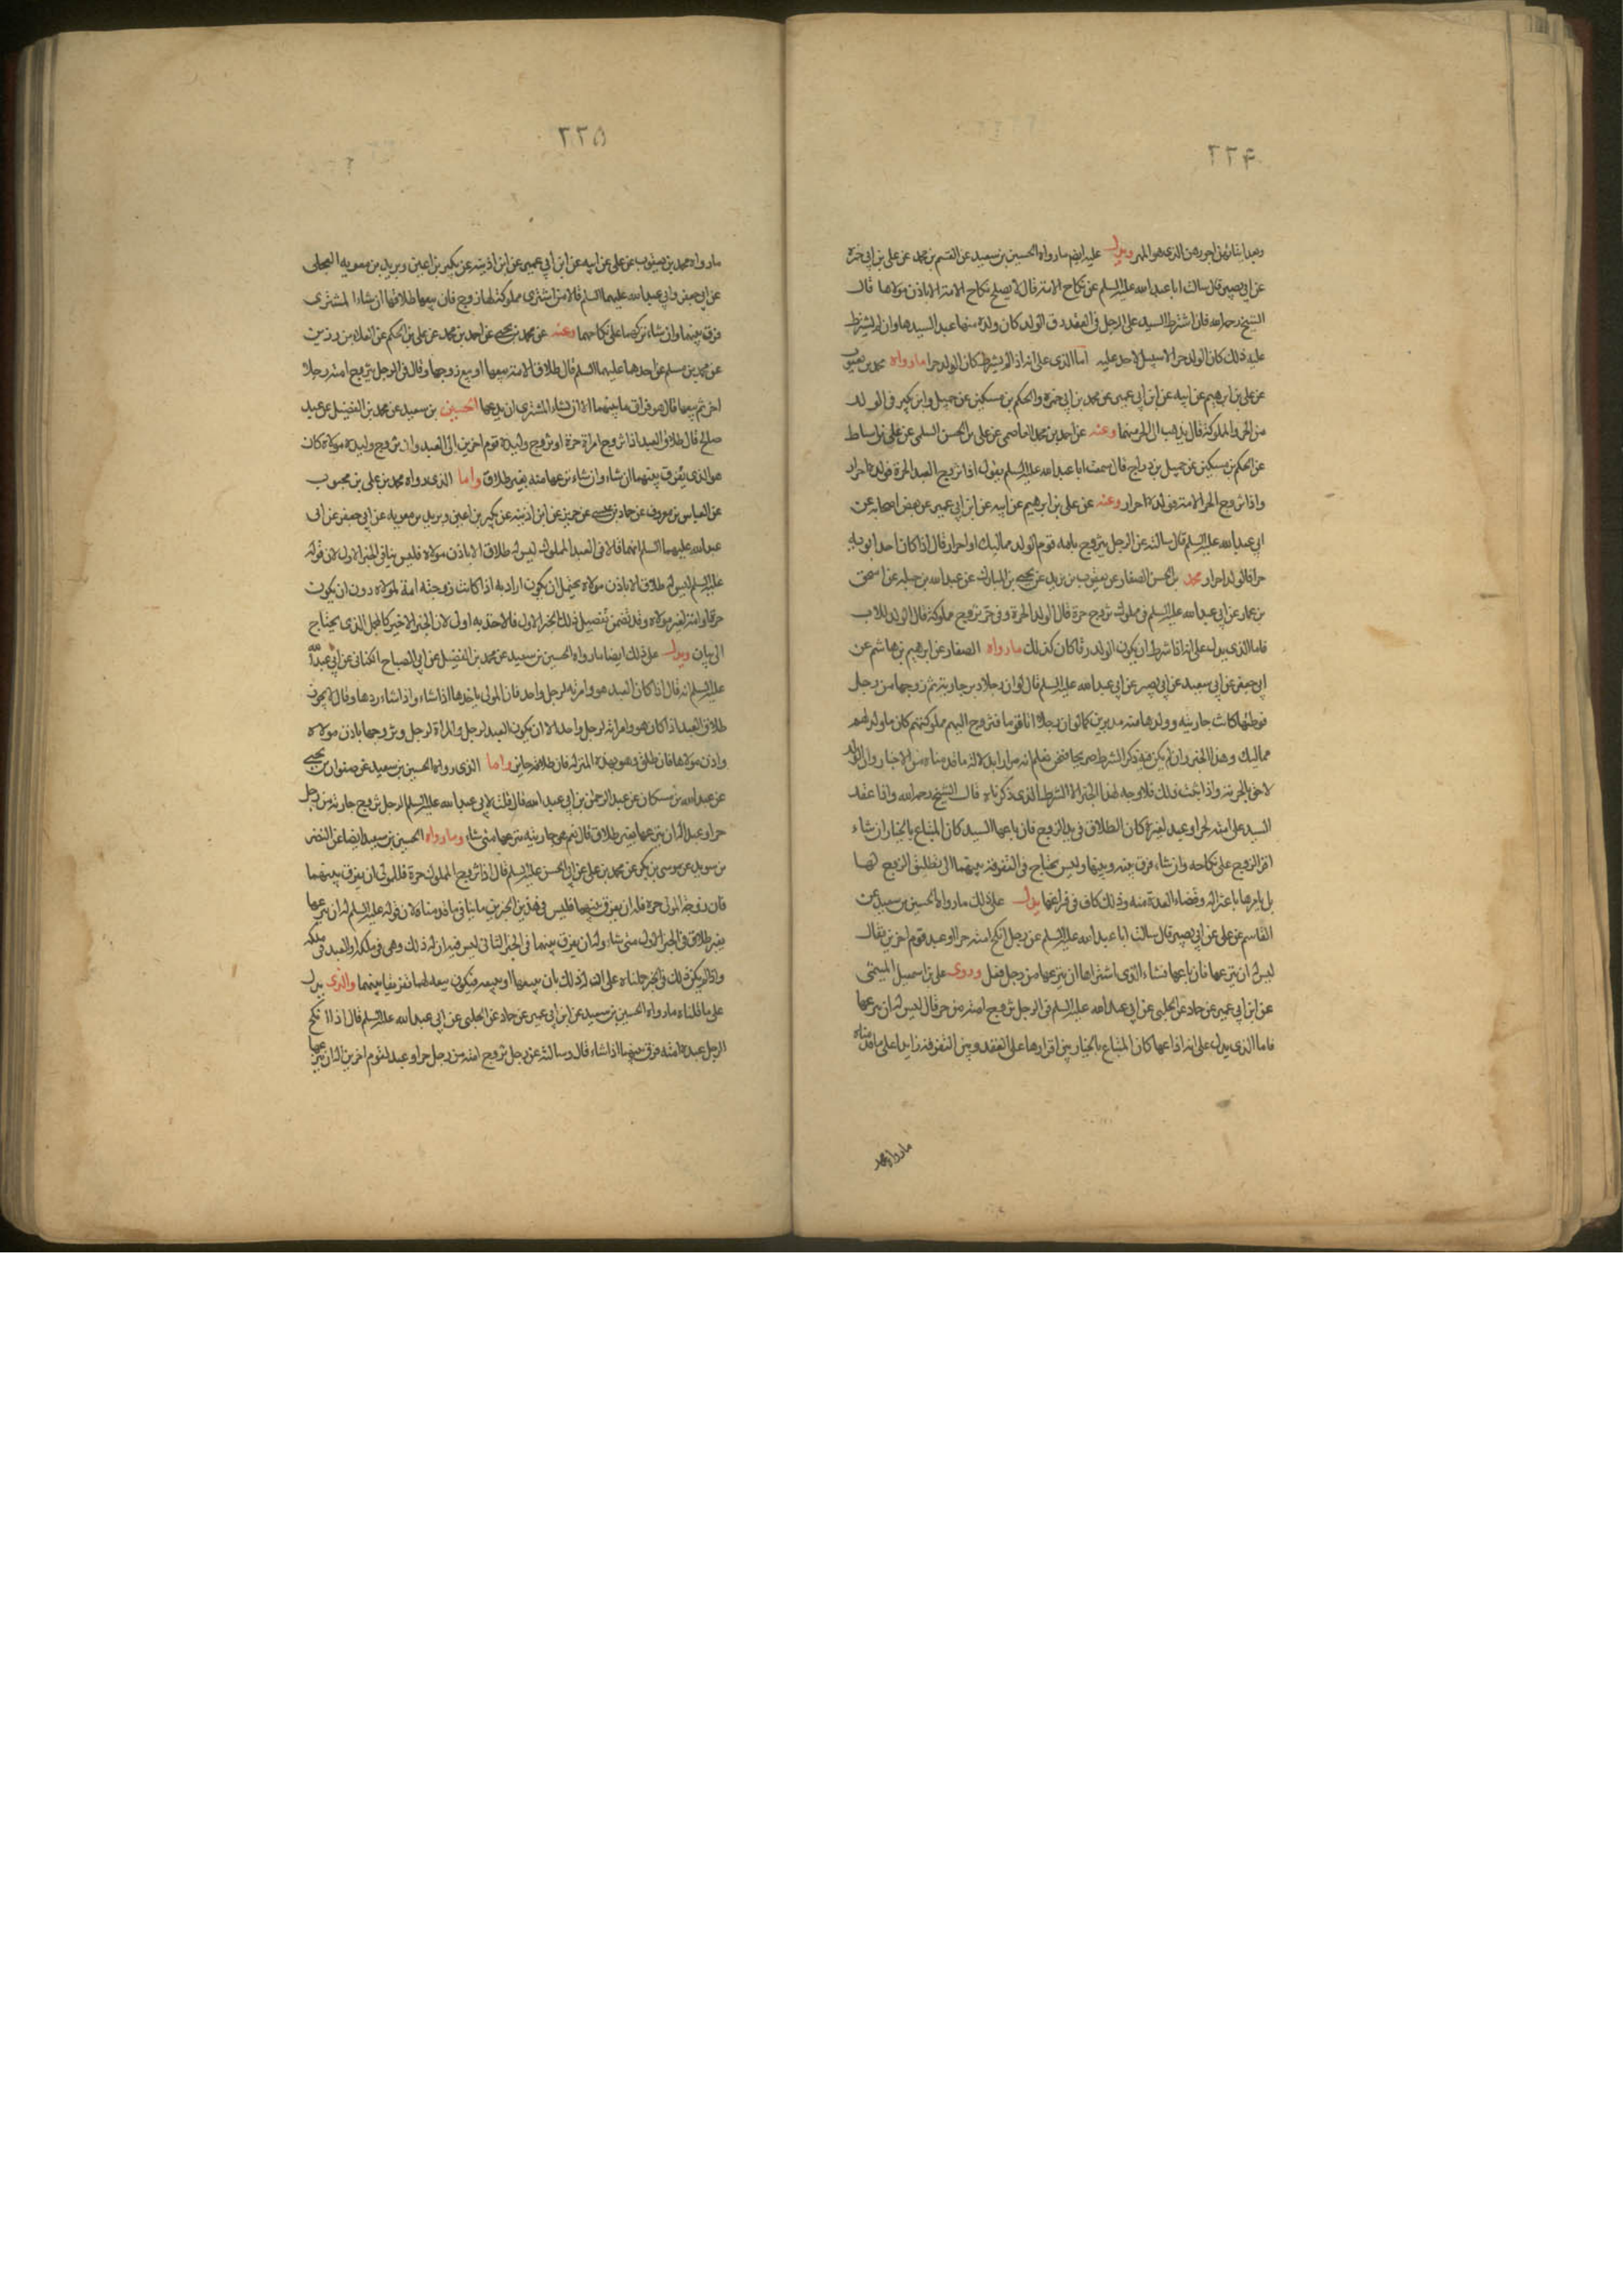 ٢٢۴
وبعد ايتائهن اجورهن الذى هو المهر ويدل عليه ايضا ما رواه الحسين بن سعيد عن القسم بن محمد عن على بن ابى حمزه
عن ابى بصير قال سالت ابا عبد الله عليه السلم عن نكاح الامة قال لا يصلح نكاح الامة الا باذن مولاها قال
الشيخ رحمه الله فان اشترط السيد على الرجل فى العقد رق الولد كان ولده منها عبدا لسيدها وان لم يشترط
عليه ذلك كان الولد حرا لا سبيل لاحد عليه اما الذى على انه اذا لم يشترط كان الولد حرا ما رواه محمد بن يعقوب
عن على بن ابرهيم عن ابيه عن ابن ابى عمير عن محمد بن ابى حمزه والحكم بن مسكين عن جميل وابن بكير فى الولد
من الحر والمملوكة قال يذهب الى الحر منهما وعنه عن احمد بن محمد العاصمى عن على بن الحسن السلمى عن على بن اسباط
عن الحكم بن مسكين عن جميل بن دراج قال سمعت ابا عبد الله عليه السلم يقول اذا تزوج العبد الحرة فولده احرار
واذا تزوج الحر الامة فولده احرار وعنه عن على بن ابرهيم عن ابيه عن ابن ابى عمير عن بعض اصحابه عن
ابى عبد الله عليه السلم قال سالته عن الرجل يتزوج بامه قوم الولد مماليك او احرار قال اذا كان احد ابويه
حرا فالولد احرار محمد بن الحسن الصفار عن يعقوب بن يزيد عن يحيى بن المبارك عن عبد الله بن جبله عن اسحق
بن عمار عن ابى عبد الله عليه السلم فى مملوك تزوج حرة قال الولد للحرة وفى حر تزوج مملوكة قال الولد للاب
فاما الذى يدل على انه اذا شرط ان يكون الولد رقا كان كذلك ما رواه الصفار عن ابرهيم بن هاشم عن
ابى جعفر عن ابى سعيد عن ابى بصير عن ابى عبد الله عليه السلم قال لو ان رجلا دبر جاريته ثم زوجها من رجل
فوطئها كانت جاريته وولدها منه مدبرين كما لو ان رجلا اتا قوما فتزوج اليهم مملوكتهم كان ما ولد لهم
مماليك وهذا الخبر وان لم يكن فيه ذكر الشرط صريحا فنحن نعلم انه مراد بدلالة ما قدمناه من الاخبار وان الولد
لاحق بالحرية واذا ثبت ذلك فلا وجه لهذا الخبر الا الشرط الذى ذكرناه قال الشيخ رحمه الله واذا عقد
السيد على امته لحر او عبد لغيره كان الطلاق فى يد الزوج فان باعها السيد كان المبتاع بالخيار ان شاء
اقر الزوج على نكاحه وان شاء فرق بينه وبينها وليس يحتاج فى التفرقة بينهما الى تطليق الزوج لها
بل يامرها باعتزاله وقضاء العدة منه وذلك كاف فى فراقها يدل على ذلك ما رواه الحسين بن سعيد عن
القاسم عن على عن ابى بصير قال سالت ابا عبد الله عليه السلم عن رجل انكح امته حرا او عبد قوم اخرين فقال
ليس له ان ينزعها فان باعها فشاء الذى اشتراها ان ينزعها من رجل فعل وروى على بن اسمعيل الميثمى
عن ابن ابى عمير عن حماد عن الحلبى عن ابى عبد الله عليه السلم فى الرجل يزوج امته من حر قال ليس له ان ينزعها
فاما الذى يدل على انه اذا باعها كان المبتاع بالخيار بين اقرارها على العقد وبين التفرقة زايدا على ما قدمناه
ما رواه محمد
٢٢۵
ما رواه محمد بن يعقوب عن على عن ابيه عن ابن ابى عمير عن ابن اذينة عن بكير بن اعين وبريد بن معويه العجلى
عن ابى جعفر وابى عبد الله عليهما السلم قالا من اشترى مملوكة لها زوج فان بيعها طلاقها ان شاء المشترى
فرق بينهما وان شاء تركهما على نكاحهما وعنه عن محمد بن يحيى عن احمد بن محمد عن على بن الحكم عن العلاء بن رزين
عن محمد بن مسلم عن احدهما عليهما السلم قال طلاق الامة بيعها او بيع زوجها وقال فى الرجل يزوج امته رجلا
اخر ثم يبيعها قال هو فراق ما بينهما الا ان يشاء المشترى ان يدعهما الحسين بن سعيد عن محمد بن الفضيل عن عبد
صالح قال طلاق العبد اذا تزوج امراة حرة او تزوج وليدة قوم اخرين الى العبد وان تزوج وليدة مولاه كان
هو الذى يفرق بينهما ان شاء وان شاء نزعها منه بغير طلاق واما الذى رواه محمد بن على بن محبوب
عن العباس بن معروف عن حماد بن عيسى عن حريز عن ابن اذينة عن بكير بن اعين وبريد بن معويه عن ابى جعفر عن ابى
عبد الله عليهما السلم انهما قالا فى العبد المملوك ليس له طلاق الا باذن مولاه فليس ينافى الخبر الاول لان قوله
عليه السلم ليس له طلاق الا باذن مولاه يحتمل ان يكون اراد به اذا كانت زوجته امة لمولاه دون ان يكون
حرة او امة لغير مولاه وقد تضمن تفصيل ذلك الخبر الاول فالاخذ به اولى لان الخبر الاخير كالمجمل الذى يحتاج
الى بيان ويدل على ذلك ايضا ما رواه الحسين بن سعيد عن محمد بن الفضيل عن ابى الصباح الكنانى عن ابى عبد الله
عليه السلم انه قال اذا كان العبد هو وامرته لرجل واحد فان المولى ياخذها اذا شاء واذا شاء ردها وقال لا يجوز
طلاق العبد اذا كان هو وامراته لرجل واحد الا ان يكون العبد لرجل والمراة لرجل وتزوجها باذن مولاه
واذن مولاها فان طلق وهو بهذه المنزلة فان طلاقه جايز واما الذى رواه الحسين بن سعيد عن صفوان بن يحيى
عن عبد الله بن مسكان عن عبد الرحمن بن ابى عبد الله قال قلت لابى عبد الله عليه السلم الرجل يزوج جاريته من رجل
حر او عبد اله ان ينزعها بغير طلاق قال نعم هى جاريته ينزعها متى شاء وما رواه الحسين بن سعيد ايضا عن النضر
بن سويد عن موسى بن بكر عن محمد بن على عن ابى الحسن عليه السلم قال اذا تزوج المملوك حرة فللمولى ان يفرق بينهما
فان زوجه المولى حرة فله ان يفرق بينهما فليس فى هذين الخبرين ما ينافى ما قدمناه لان قوله عليه السلم له ان ينزعها
بغير طلاق فى الخبر الاول متى شاء وله ان يفرق بينهما فى الخبر الثانى ليس فيه ان له ذلك وهى فى ملكه او العبد فى ملكه
واذا لم يكن ذلك فى الخبر حملناه على ان له ذلك بان يبيعها او يبيعه فيكون بيعه لهما تفريقا بينهما والذى يدل
على ما قلناه ما رواه الحسين بن سعيد عن ابن ابى عمير عن حماد عن الحلبى عن ابى عبد الله عليه السلم قال اذا انكح
الرجل عبده امته فرق بينهما اذا شاء قال وسالته عن رجل تزوج امته من رجل حر او عبد لقوم اخرين اله ان ينزعها